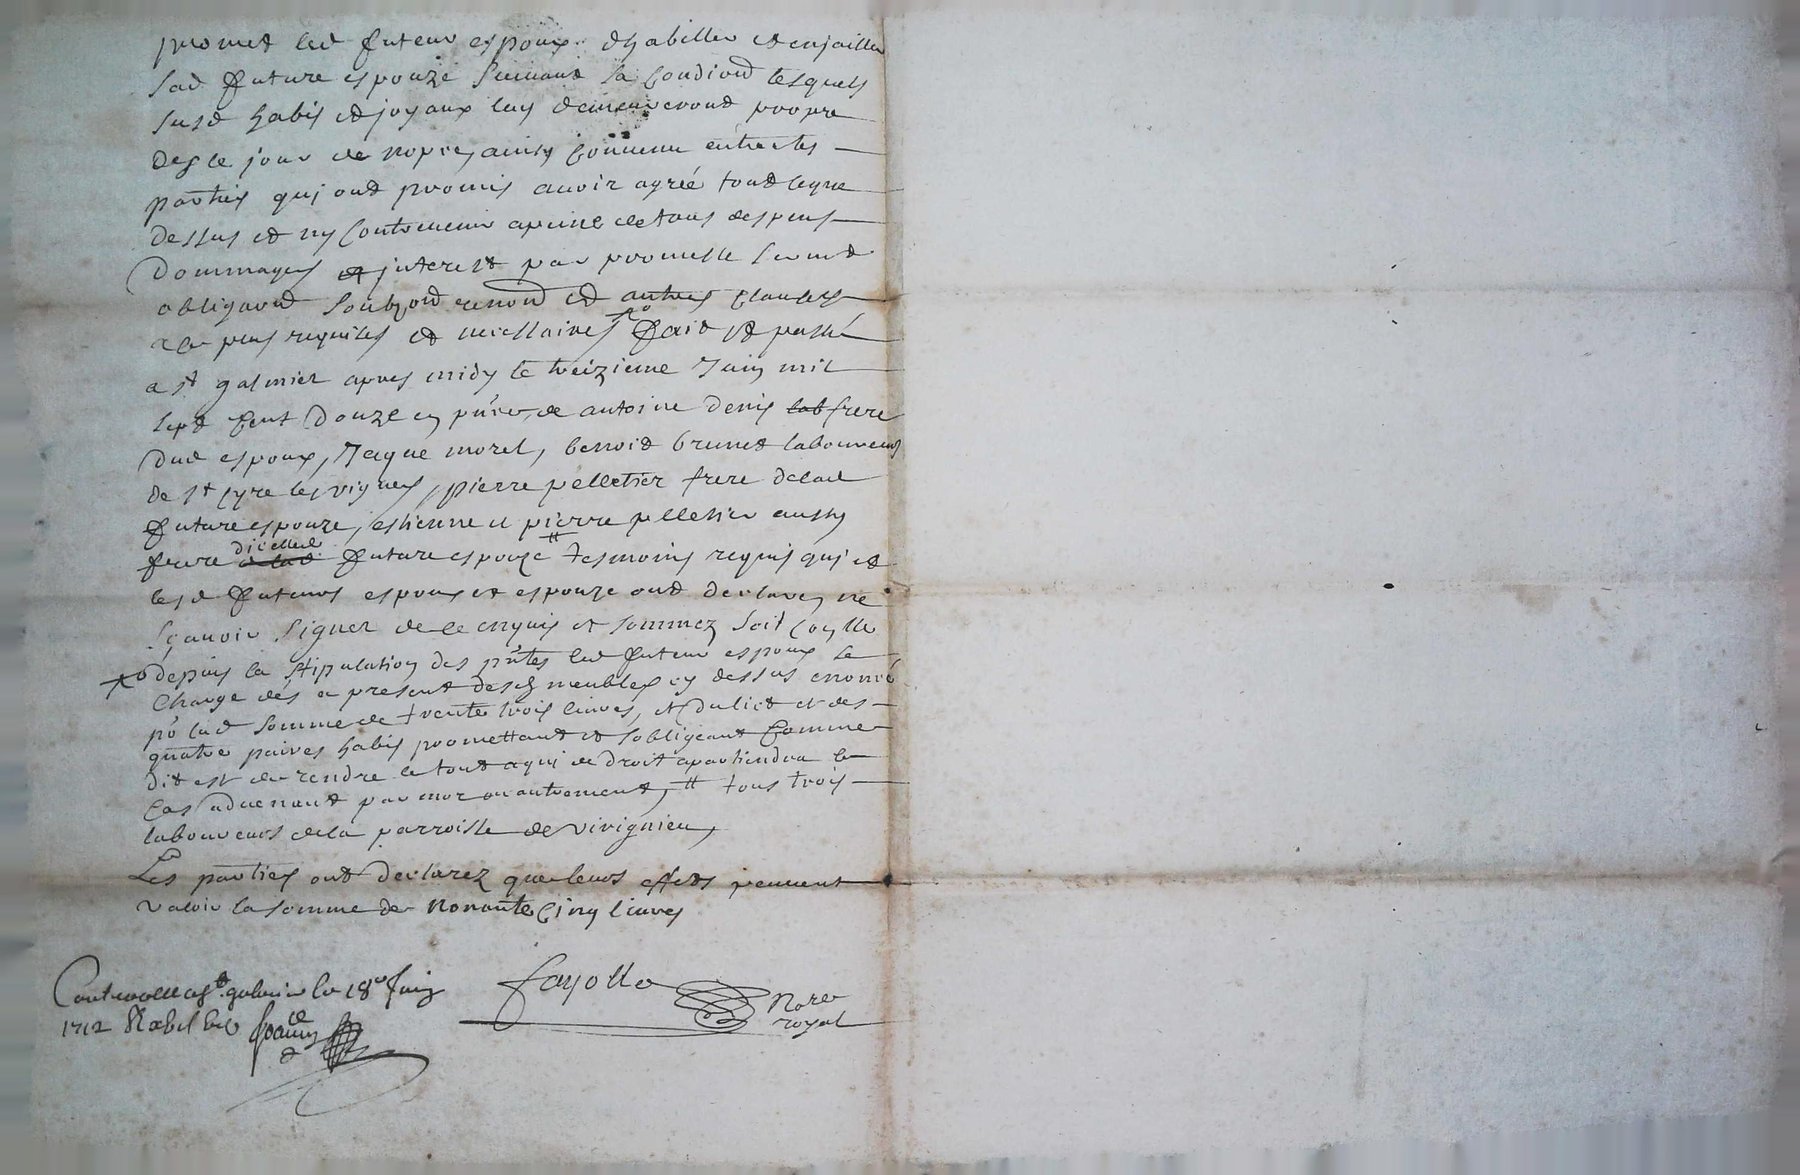 promet led futeur espoux dhabiller et enjailler
sad future espouze suivant sa condiond lesquels
susd habis et joyaux luy demeureront propre
des le jour de nopces ainsy convenu entre les
parties quj ont promis avoir agreé tout ceque
dessus et ny contrevenir apeine de tous despens
Dommages et jnterest par promesse sermt
obligaond soubzond renond et autres clauses
a ce plus requises et necessaires Fait et passé
a st galmier apres midy le treizieme Juin mil
sept cent Douze en pnce de antoine denis lab frere
Dud espoux, Jaque morel, benoit brunet laboureurs
de st Cyre les vignes, pierre pelletier frere delad
future espouze, estienne et pierre pelletier aussy
frere dicelle future espouze tesmoins requis quj et
lesd futeurs espoux et espouze ont declarez ne
sçavoir signer de ce enquis et sommez soit Conlle
depuis la stipulation des pntes led futeur espoux se
charge dés a present desd meubles cy dessus enoncé
po lad somme de trente trois livres, et dulict et des
quatre paires habis promettant et sobligeant comme
dit est de rendre le tout a qui de droit apartiendra le
cas advenant par mor ou autrement, # tous trois
laboureurs dela parroisse de virignieu,
Les parties ont declarez que leurs effets peuvent
valoir la somme de Nonante Cinq livres
Controolle a st galmier le 18e Juin
1712
fayolle
Nore
royal